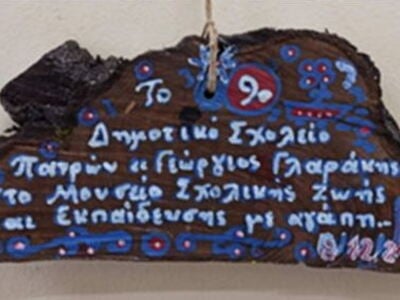 Το 9ο
Δημοτικό Σχολείο
Πατρών "Γεώργιος Γλαράκης
στο Μουσείο Σχολικής Ζωής
και Εκπαίδευσης με αγάπη...